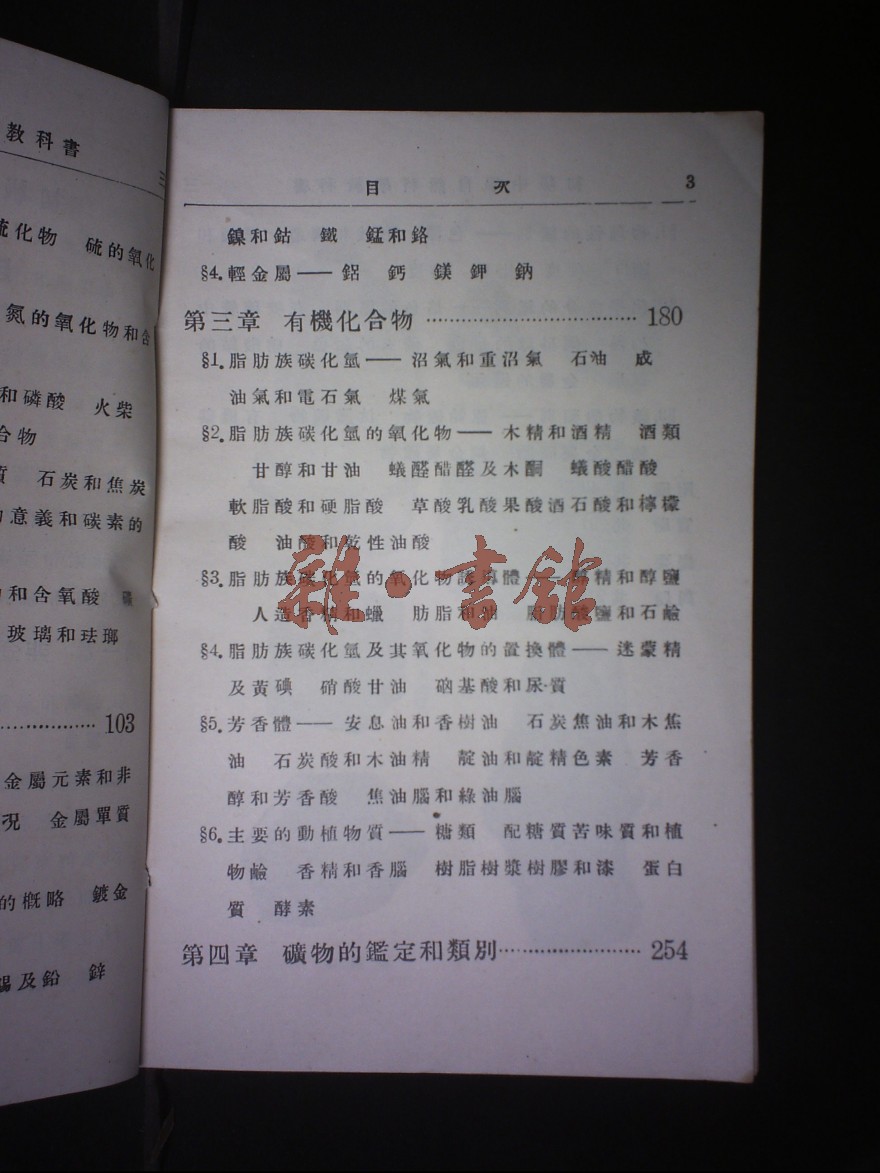 教科書
三
硫化物　硫的氧化
氮的氧化物和含
和磷酸　火柴
合物
質　石炭和焦炭
意義和碳素的
和含氧酸
玻璃和珐瑯
103
金屬元素和非
况　金屬單質
的概略　鍍金
錫及鉛　鋅
目　次　3
鎳和鈷　鐵　錳和鉻
§4.輕金屬——鋁　鈣　鎂　鉀　鈉
第三章　有機化合物 ………………………… 180
§1.脂肪族碳化氫——沼氣和重沼氣　石油　成
油氣和電石氣　煤氣
§2.脂肪族碳化氫的氧化物——木精和酒精　酒類
甘醇和甘油　蟻醛醋醛及木酮　蟻酸醋酸
軟脂酸和硬脂酸　草酸乳酸果酸酒石酸和檸檬
酸　油酸和乾性油酸
§3.脂肪族碳化氫的氧化物誘導體——精和醇鹽
人造香精和蠟　肪脂和油　脂肪酸鹽和石鹼
§4.脂肪族碳化氫及其氧化物的置換體——迷蒙精
及黃碘　硝酸甘油　硇基酸和尿質
§5.芳香體——安息油和香樹油　石炭焦油和木焦
油　石炭酸和木油精　靛油和靛精色素　芳香
醇和芳香酸　焦油腦和綠油腦
§6.主要的動植物質——糖類　配糖質苦味質和植
物鹼　香精和香腦　樹脂樹漿樹膠和漆　蛋白
質　酵素
第四章　礦物的鑑定和類別………………… 254
雜·書館